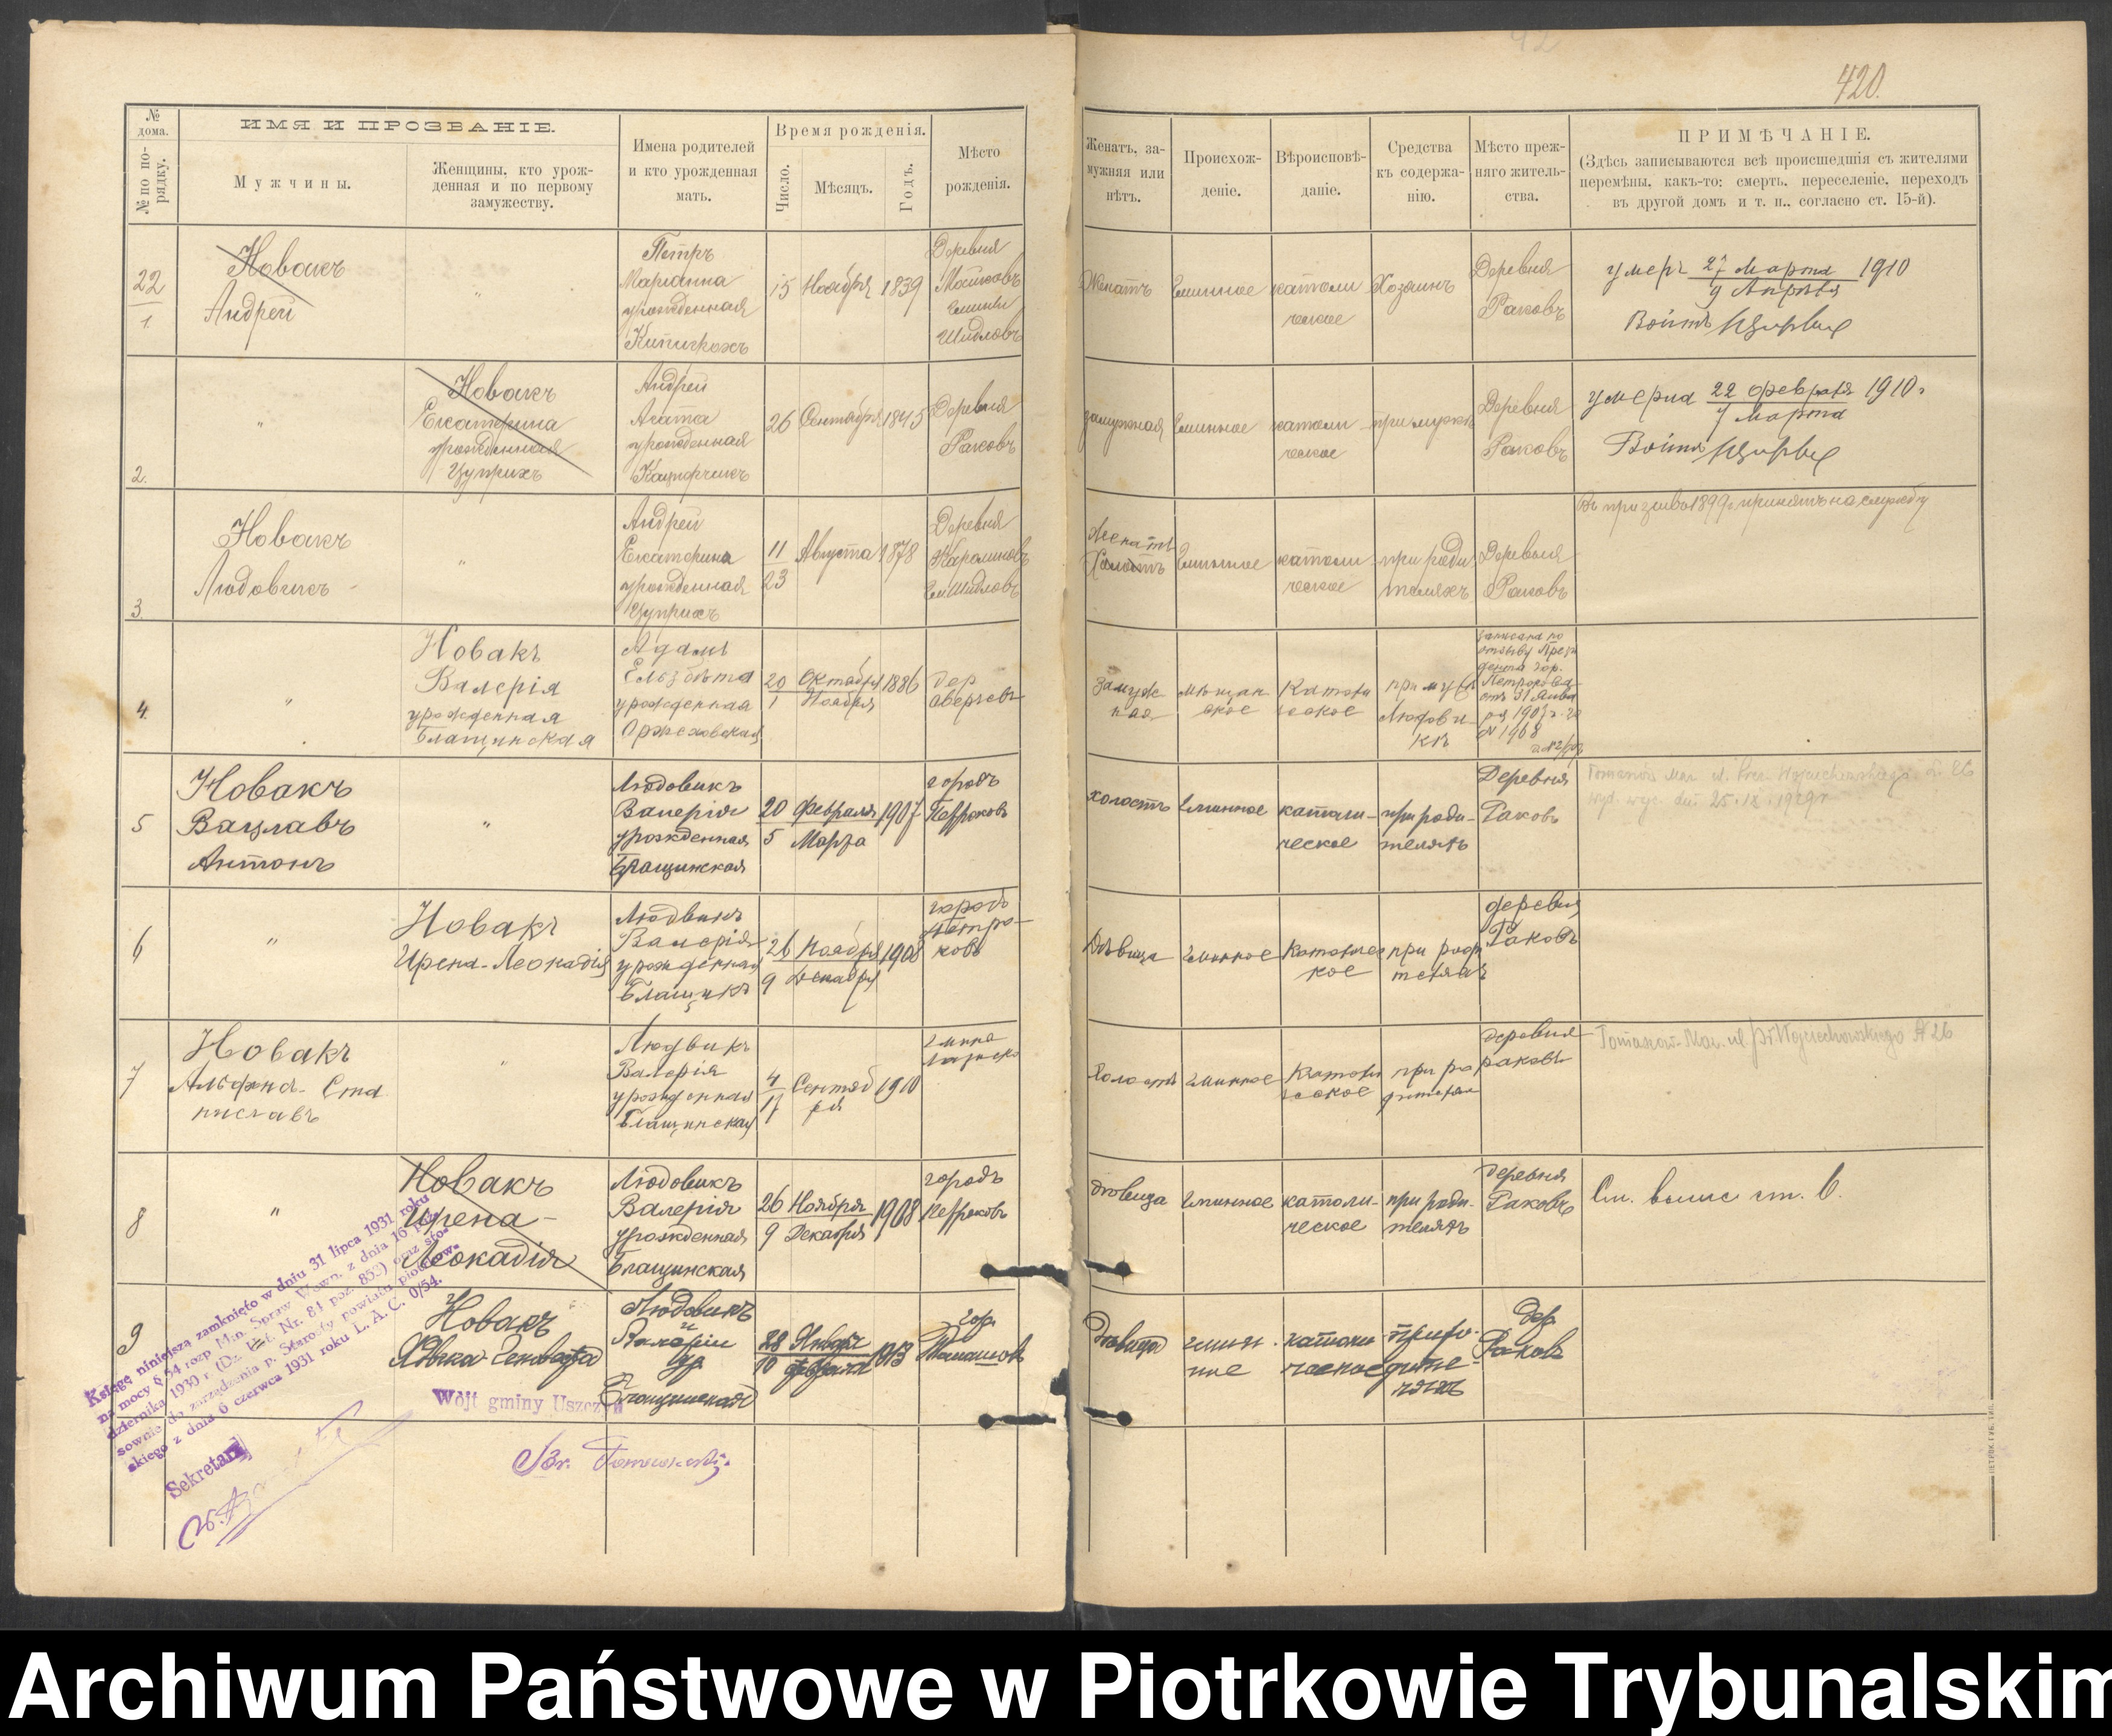 420.
№ дома.
№ по порядку.
ИМЯ И ПРОЗВАНІЕ.
Мужчины.
Женщины, кто урож-
денная и по первому
замужеству.
Имена родителей
и кто урожденная
мать.
Время рожденія.
Число.
Мѣсяцъ.
Годъ.
Мѣсто
рожденія.
Женатъ, за-
мужняя или
нѣтъ.
Происхож-
деніе.
Вѣроисповѣ-
даніе.
Средства
къ содержа-
нію.
Мѣсто преж-
няго житель-
ства.
ПРИМѢЧАНІЕ.
(Здѣсь записываются всѣ происшедшія съ жителями
перемѣны, какъ-то: смерть, переселеніе, переходъ
въ другой домъ и т. п., согласно ст. 15-й).
22
1
Новакъ
Андрей
"
Петръ
Маріанна
урожденная
15 Ноября 1839
Деревня
гмины
Шидловъ
Женатъ
Гминное
католи
ческое
Хозяинъ
Деревня
Раковъ
умеръ 27 Марта 1910
9 Апрѣля
Войтъ
2.
"
Новакъ
Екатерина
урожденная
Цуприхъ
Андрей
Агата
урожденная
26 Сентября 1845
Деревня
Раковъ
замужная
Гминное
католи
ческое
при мужѣ
Деревня
Раковъ
умерла 22 февраля 1910 г
7 Марта
Войтъ
3.
Новакъ
Людовикъ
"
Андрей
Екатерина
урожденная
Цуприхъ
11 Августа 1878
23
Деревня
Каролиновъ
Гм. Шидловъ
Женатъ
Холостъ
Гминное
католи
ческое
при роди
теляхъ
Деревня
Раковъ
Въ призывъ 1899 г. принятъ на службу
4.
"
Новакъ
Валерія
урожденная
Блащинская
Адамъ
Елизбѣта
урожденная
Оржеховская
20 Октября 1886
1 Ноября
дер
замуж
ная
мѣщан
ское
Католи
ческое
при мужѣ
Людови
кѣ
записана по
отзыву През
дента гор.
Петрокова
отъ 31 Янва
ря 1907 г. за
№ 1968
5
Новакъ
Вацлавъ
Антонъ
"
Людовикъ
Валерія
урожденная
Блащинская
20 февраля 1907
5 Марта
городъ
Петроковъ
холостъ
гминное
католи-
ческое
при роди-
теляхъ
Деревня
Раковъ
Tomaszów Maz. ul. Prez. Wojciechowskiego № 26
wyd. wyc. dn. 25.IX.1929 r
6
"
Новакъ
Ирена-Леокадія
Людвикъ
Валерія
урожденная
Блащикъ
26 Ноября 1908
9 Декабря
городъ
Петро-
ковъ
Дѣвица
гминное
Католичес
кое
при роди
теляхъ
деревня
Раковъ
7
Новакъ
Альфнс. Ста
ниславъ
"
Людвикъ
Валерія
урожденная
Блащинская
4 Сентяб 1910
17 ря
гмина
Холостъ
гминное
Католи
ческое
при ро
дителяхъ
деревня
раковъ
Tomaszów-Maz. ul. Pr. Wojciechowskiego № 26
8
"
Новакъ
Ирена-
Леокадія
Людовикъ
Валерія
урожденная
Блащинская
26 Ноября 1908
9 Декабря
городъ
Петроковъ
дѣвица
гминное
католи-
ческое
при роди-
теляхъ
деревня
Раковъ
См. выше ст. 6.
9
Новакъ
Людовикъ
и
Валеріи
ур
Блащинская
28 Января 1913
10 февраля
гор.
Томашовъ
Дѣвица
гмин-
ное
католи
ческое
при ро-
дите-
ляхъ
дер
Раковъ
Księgę niniejszą zamknięto w dniu 31 lipca 1931 roku
na mocy § 54 rozp. Min. Spraw Wewn. z dnia 16 paź-
dziernika 1930 r. (Dz. Ust. Nr. 84 poz. 852) oraz sto-
sownie do zarządzenia p. Starosty powiatu piotrkow-
skiego z dnia 6 czerwca 1931 roku L. A. C. 0/54.
Sekretarz
Wójt gminy Uszczyn
ПЕТРОК. ГУБ. ТИП.
Archiwum Państwowe w Piotrkowie Trybunalskim